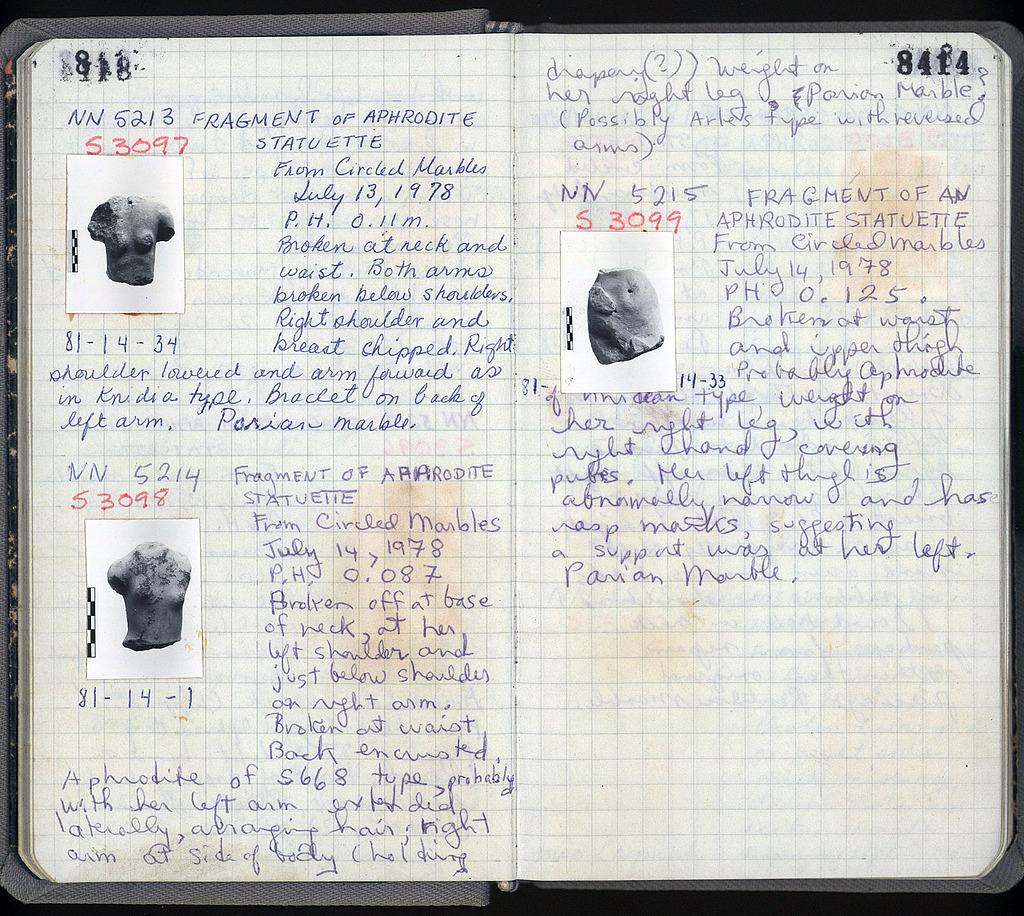 NN 5213 FRAGMENT OF APHRODITE
S 3097 STATUETTE
From Circled Marbles
July 13, 1978
P.H. 0.11 m.
Broken at neck and
waist. Both arms
broken below shoulders.
Right shoulder and
81-14-34
breast chipped. Right
shoulder lowered and arm forward as
in Knidia type. Braclet on back of
left arm. Parian marble.
NN 5214 FRAGMENT OF APHRODITE
S 3098 STATUETTE
From Circled Marbles
July 14, 1978
P.H. 0.087
Broken off at base
of neck, at her
left shoulder and
just below shoulder
81-14-1
on right arm.
Broken at waist
Back encrusted.
Aphrodite of S668 type, probably
with her left arm extended
laterally, arranging hair; right
arm at side of body (holding
8414
drapery(?)) Weight on
her right leg. Parian Marble?
(Possibly Arles type with reversed
arms).
NN 5215 FRAGMENT OF AN
S 3099 APHRODITE STATUETTE
From Circled Marbles
July 14, 1978
PH 0.125.
Broken at waist
and upper thigh
Probably Aphrodite
81-14-33
of type, weight on
her right leg, with
right hand covering
pubes. Her left thigh is
abnormally narrow and has
rasp marks, suggesting
a support was at her left.
Parian Marble.